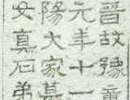 晉故豫章
元年十一
陽大家墓
女真石弟